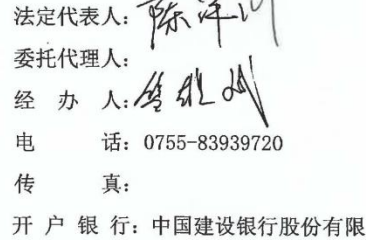 法定代表人：
委托代理人：
经 办 人：
电 话：0755-83939720
传 真：
开 户 银 行：中国建设银行股份有限